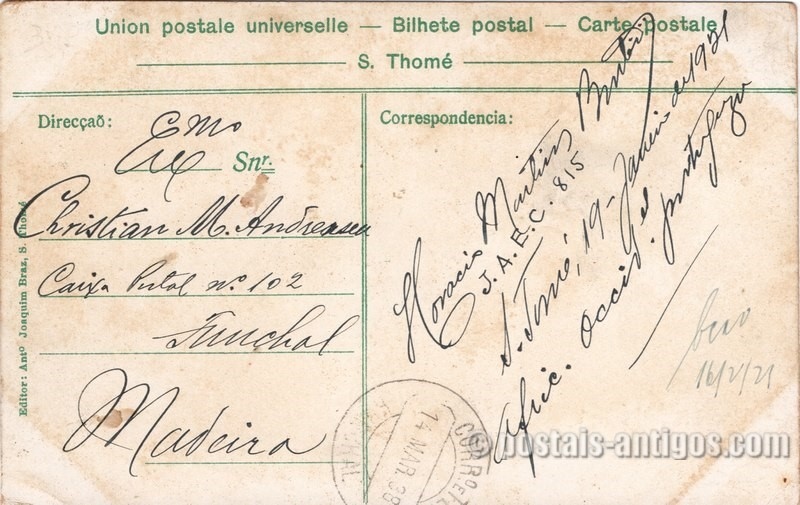 Union postale universelle — Bilhete postal — Carte postale
S. Thomé
Direcçaõ:
Exmo Snr.
Christian M. Andressen
Caixa Postal nº 102
Funchal
Madeira
Editor: Antº Joaquim Braz, S. Thomé
Correspondencia:
Horacio Martins
J. A. E. C. 815
S. Tomé, 19 - Janeiro de 1921
Afric. occid. el portugeza
16/2/21
FUNCHAL
14 MAR. 38
CORREIO
© postais-antigos.com